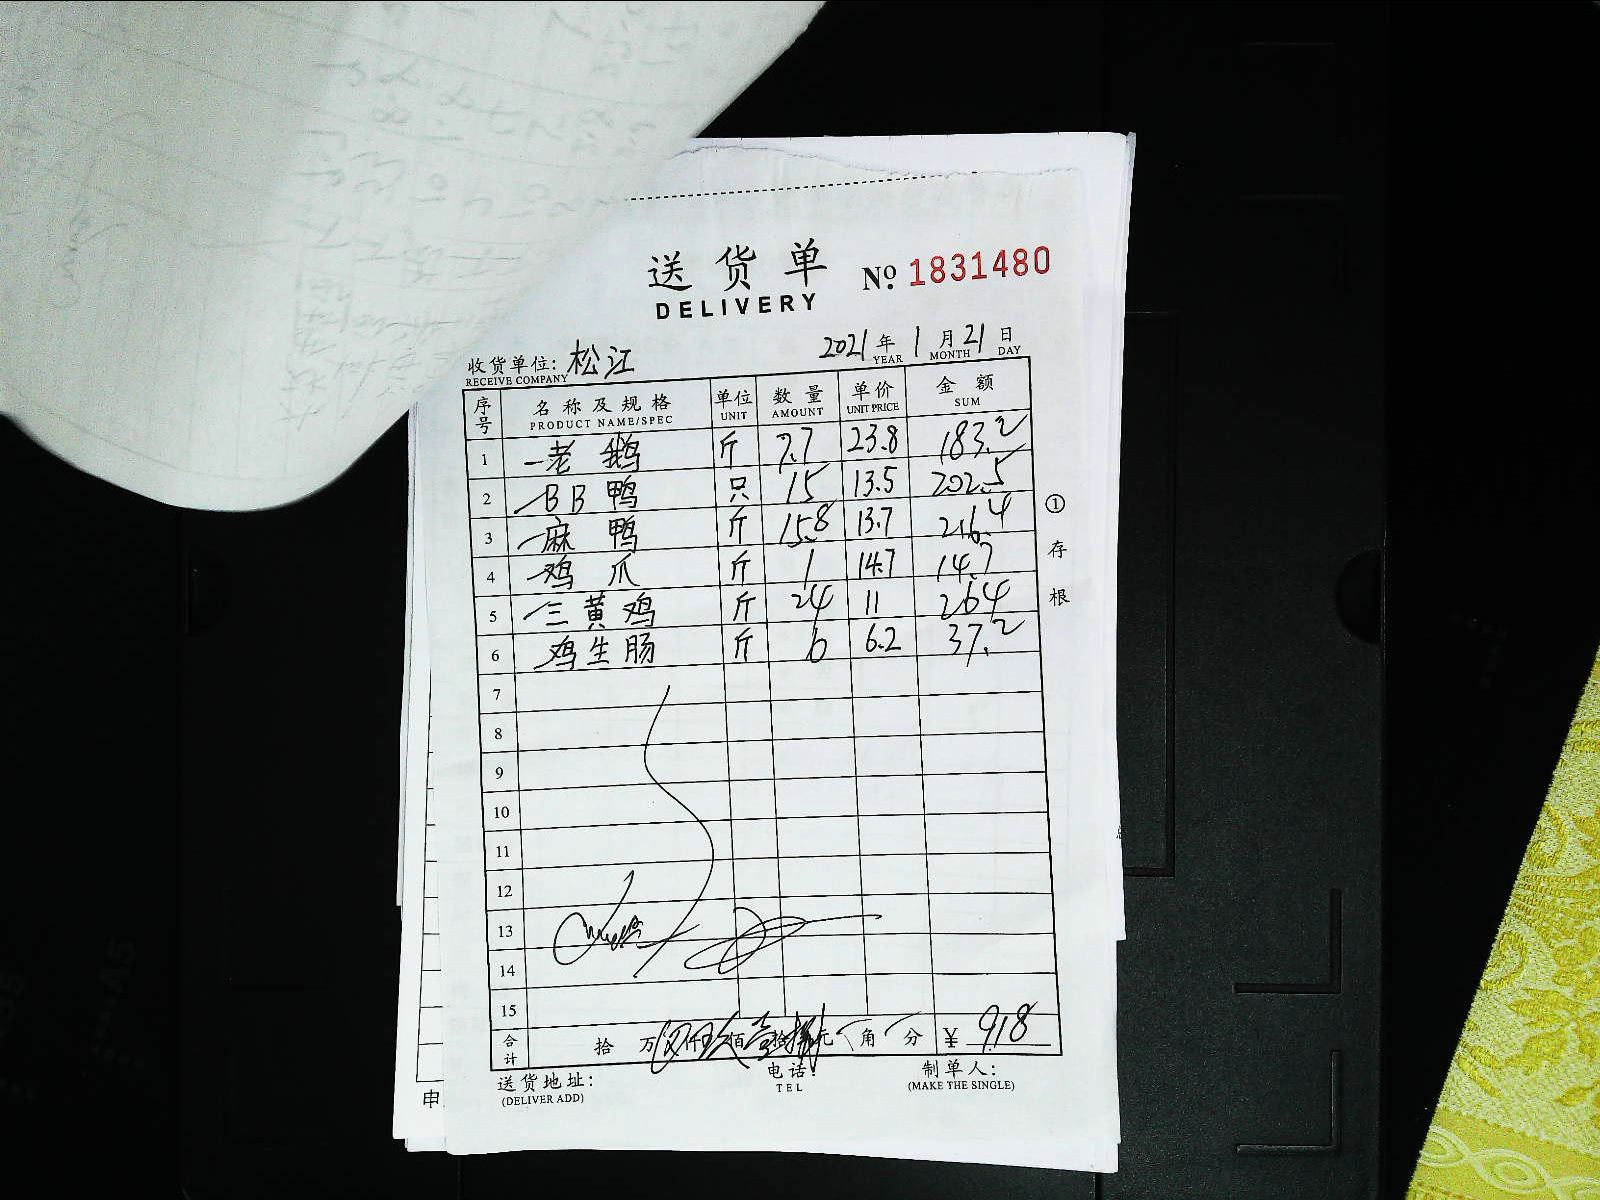 送货单 № 1831480
DELIVERY
收货单位: 松江 2021 年 1 月 21 日
RECEIVE COMPANY YEAR MONTH DAY
序号 名称及规格 单位 数量 单价 金额
PRODUCT NAME/SPEC UNIT AMOUNT UNIT PRICE SUM
1 老鹅 斤 7.7 23.8 183.2
2 BB鸭 只 15 13.5 202.5
3 麻鸭 斤 15.8 13.7 216.4
4 鸡爪 斤 1 14.7 14.7
5 三黄鸡 斤 24 11 264
6 鸡生肠 斤 6 6.2 37.2
7
8
9
10
11
12
13
14
15
合计 拾 万 仟 佰 壹 拾 元 角 分 ¥ 918
送货地址: 电话: 制单人:
(DELIVER ADD) TEL (MAKE THE SINGLE)
① 存根
申